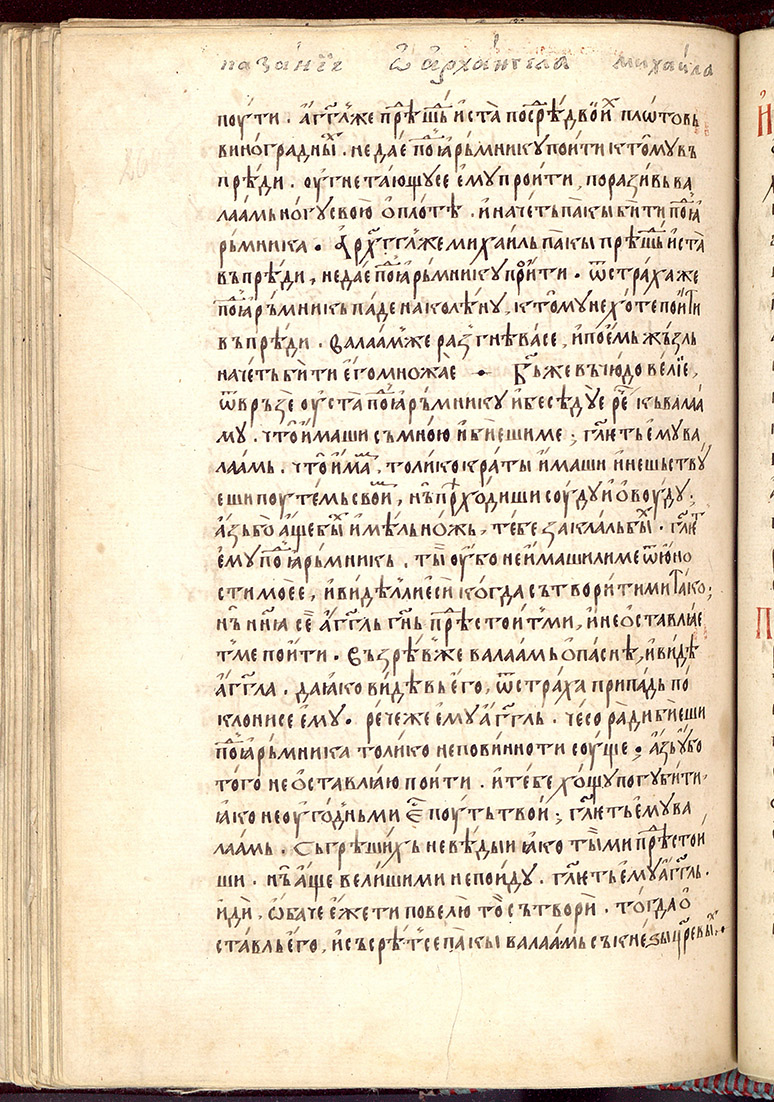 пазанїе ѿ арха́нгела михаи́ла
поути . а҆гг҃лже прѣ́шь и҆ста̀ посрѣ́д двои́х пло́товь
виногра́дных . неда́е под҆ꙗ҆рьмникꙋ поити к томꙋ въ
прѣди . оу҆гнета́ющꙋее є҆мꙋ пройти , поразивь ва
лаа́мь ногꙋ свою̀ о҆ пло́тѣ . и҆ наче́ть па́кы бити под҆ꙗ҆
рьмника . а҆рхгг҃лже михаи́ль па́кы прѣ́шь и҆ста̀
въ прѣди , неда́е под҆ꙗ҆рьмникꙋ про́йти . ѿ стра́ха же
под҆ꙗ҆рьмникь па́де на колѣ́нꙋ , к томꙋ не хо́те пои́ти
въ прѣди . валаа́мже разгнѣ́васе , и҆ пое́мь жъзль
наче́ть бити є҆го̀ множа́е • бг҃ь же въ чю́до ве́лїе ,
ѿвръзѐ оу҆ста̀ под҆ꙗ҆рьмникꙋ и҆ бесѣ́дꙋе рѐ къ валаа́
мꙋ . что̀ и҆маши съ мно́ю и҆ бїешиме ; гл҃еть є҆мꙋ ва
лаа́мь . что̀ и҆маш , толи́ко кра́ты и҆маши и҆ не шьствꙋ́
еши поуте́мь свои́м , нь̀ прѣхо́диши сю́дꙋ и҆ о҆во́удꙋ ;
а҆зь бо̀ а҆́ще бых и҆мѣ́ль но́жь , те́бе закла́ль бых . гл҃ет
є҆мꙋ под҆ꙗ҆рьмникь . ты̀ оу҆́бо не и҆маши ли ме ѿ ю҆но
сти мое́е , и҆ ви́дѣл ли є҆сѝ ко́гда сътвори́ти ми та́ко ;
нь̀ нн҃ꙗ сѐ а҆́гг҃ль гн҃ь прѣ́стои́т ми , и҆ не о҆ставлꙗ́е
т ме пои́ти . възрѣ́вже валаа́мь о҆па́снѣ , и҆ ви́дѣ
а҆́гг҃ла . да ꙗ҆́ко ви́дѣвь є҆го , ѿ стра́ха припа́дь по
клони се є҆мꙋ . рече же є҆мꙋ а҆́гг҃ль . чесо ра́ди бїеши
под҆ꙗ҆рьмника толи́ко непови́нно ти соу́ще ; а҆зь оу҆́бо
того не о҆ставлꙗ́ю пои́ти . и҆ те́бе хо́щꙋ погꙋби́ти ,
ꙗ҆ко неоуго́дьными є҆̀ поу́ть тво́и ; гл҃еть є҆мꙋ ва
лаа́мь . съгрѣши́хь не вѣ́дыи ꙗ҆ко ты̀ ми прѣ́стои́
ши . нь̀ а҆́ще вели́ши ми не пои́дꙋ . гл҃еть є҆мꙋ а҆́гг҃ль .
и҆дѝ , ѡ҆ба́че є҆́же ти повелю̀ то̀ сътворѝ . то́гда о҆
ста́вль є҆го , и҆ съсрѣ́т се па́кы валаа́мь съ кнезы цр҃евы .